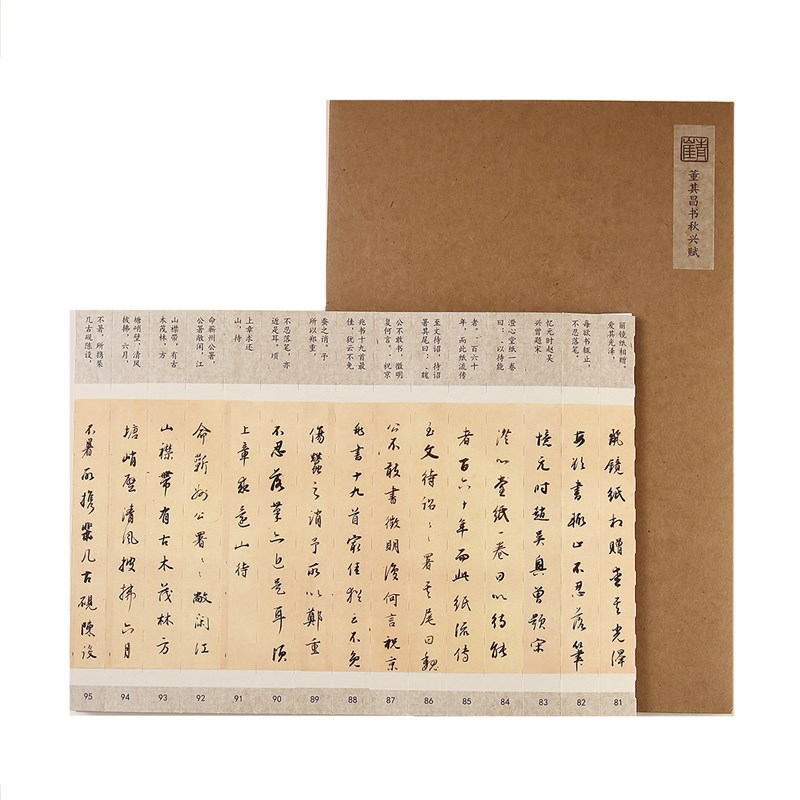 董其昌书秋兴赋
丽镜纸相赠。
爱其光泽，
每欲书辄止，
不忍落笔。
忆元时赵吴
兴曾题宋
澄心堂纸一卷
曰：：以待能
者。：百六十
年，而此纸流传
至文待诏，待诏
署其尾曰：：魏
公不敢书，徵明
复何言。：祝京
兆书十九首最
佳，犹云不免
蚕之诮。予
所以郑重
不忍落笔，亦
近是耳。顷
上章求还
山，待
命蕲州公署，
公署敞闲，江
山襟带，有古
木茂林。方
塘峭壁，清风
披拂，六月，
不暑，所携棐
几古砚陈设，
麗镜纸相赠爱其光泽
每欲書辄止不忍落筆
憶元时趙吴興曾题宋
澄心堂纸一卷曰以待能
者百六十年而此纸流传
至文待诏〻署其尾曰魏
公不敢書徵明復何言祝京
兆書十九首最佳猶云不免
傷蠶之诮予所以鄭重
不忍落筆亦近是耳顷
上章求還山待
命蕲州公署〻敞闲江
山襟带有古木茂林方
塘峭壁清风披拂六月
不暑所携棐几古砚陈设
95 94 93 92 91 90 89 88 87 86 85 84 83 82 81